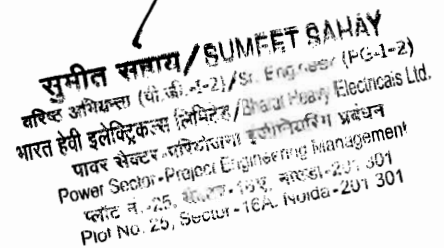 सुमीत सहाय/SUMEET SAHAY
वरिष्ठ अभियन्ता (पी.जी.-1-2)/Sr. Engineer (PG-1-2)
भारत हेवी इलेक्ट्रिकल्स लिमिटेड/Bharat Heavy Electricals Ltd.
पावर सेक्टर-परियोजना इंजीनियरिंग प्रबंधन
Power Sector-Project Engineering Management
प्लॉट नं.-25, सेक्टर-16ए, नोएडा-201 301
Plot No. 25, Sector-16A, Noida-201 301